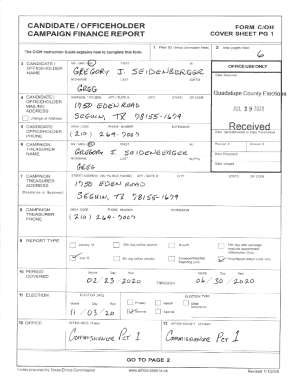 CANDIDATE / OFFICEHOLDER
CAMPAIGN FINANCE REPORT
FORM C/OH
COVER SHEET PG 1
The C/OH Instruction Guide explains how to complete this form.
1 Filer ID (Ethics Commission Filers)
2 Total pages filed:
6
3 CANDIDATE / OFFICEHOLDER NAME
MS / MRS / MR FIRST MI
GREGORY J. SEIDENBERGER
NICKNAME LAST SUFFIX
GREG
OFFICE USE ONLY
Date Received
Guadalupe County Elections
JUL 09 2020
Received
4 CANDIDATE / OFFICEHOLDER MAILING ADDRESS
Change of Address
ADDRESS / PO BOX; APT / SUITE #; CITY; STATE; ZIP CODE
1750 EDEN ROAD
SEGUIN, TX 78155-1679
5 CANDIDATE/ OFFICEHOLDER PHONE
AREA CODE PHONE NUMBER EXTENSION
(210) 269-7007
Date Hand-delivered or Date Postmarked
Receipt # Amount $
Date Processed
Date Imaged
6 CAMPAIGN TREASURER NAME
MS / MRS / MR FIRST MI
GREGORY J. SEIDENBERGER
NICKNAME LAST SUFFIX
GREG
7 CAMPAIGN TREASURER ADDRESS
(Residence or Business)
STREET ADDRESS (NO PO BOX PLEASE); APT / SUITE #; CITY; STATE; ZIP CODE
1750 EDEN ROAD
SEGUIN, TX 78155-1679
8 CAMPAIGN TREASURER PHONE
AREA CODE PHONE NUMBER EXTENSION
(210) 269-7007
9 REPORT TYPE
January 15
30th day before election
Runoff
15th day after campaign treasurer appointment (Officeholder Only)
July 15
8th day before election
Final Report (Attach C/OH - FR)
10 PERIOD COVERED
Month Day Year
02/23/2020
THROUGH
Month Day Year
06/30/2020
11 ELECTION
ELECTION DATE
Month Day Year
11/03/2020
ELECTION TYPE
Primary
Runoff
Other
Description
General
Special
12 OFFICE
OFFICE HELD (if any)
COMMISSIONER PCT 1
13 OFFICE SOUGHT (if known)
COMMISSIONER PCT 1
GO TO PAGE 2
Forms provided by Texas Ethics Commission
www.ethics.state.tx.us